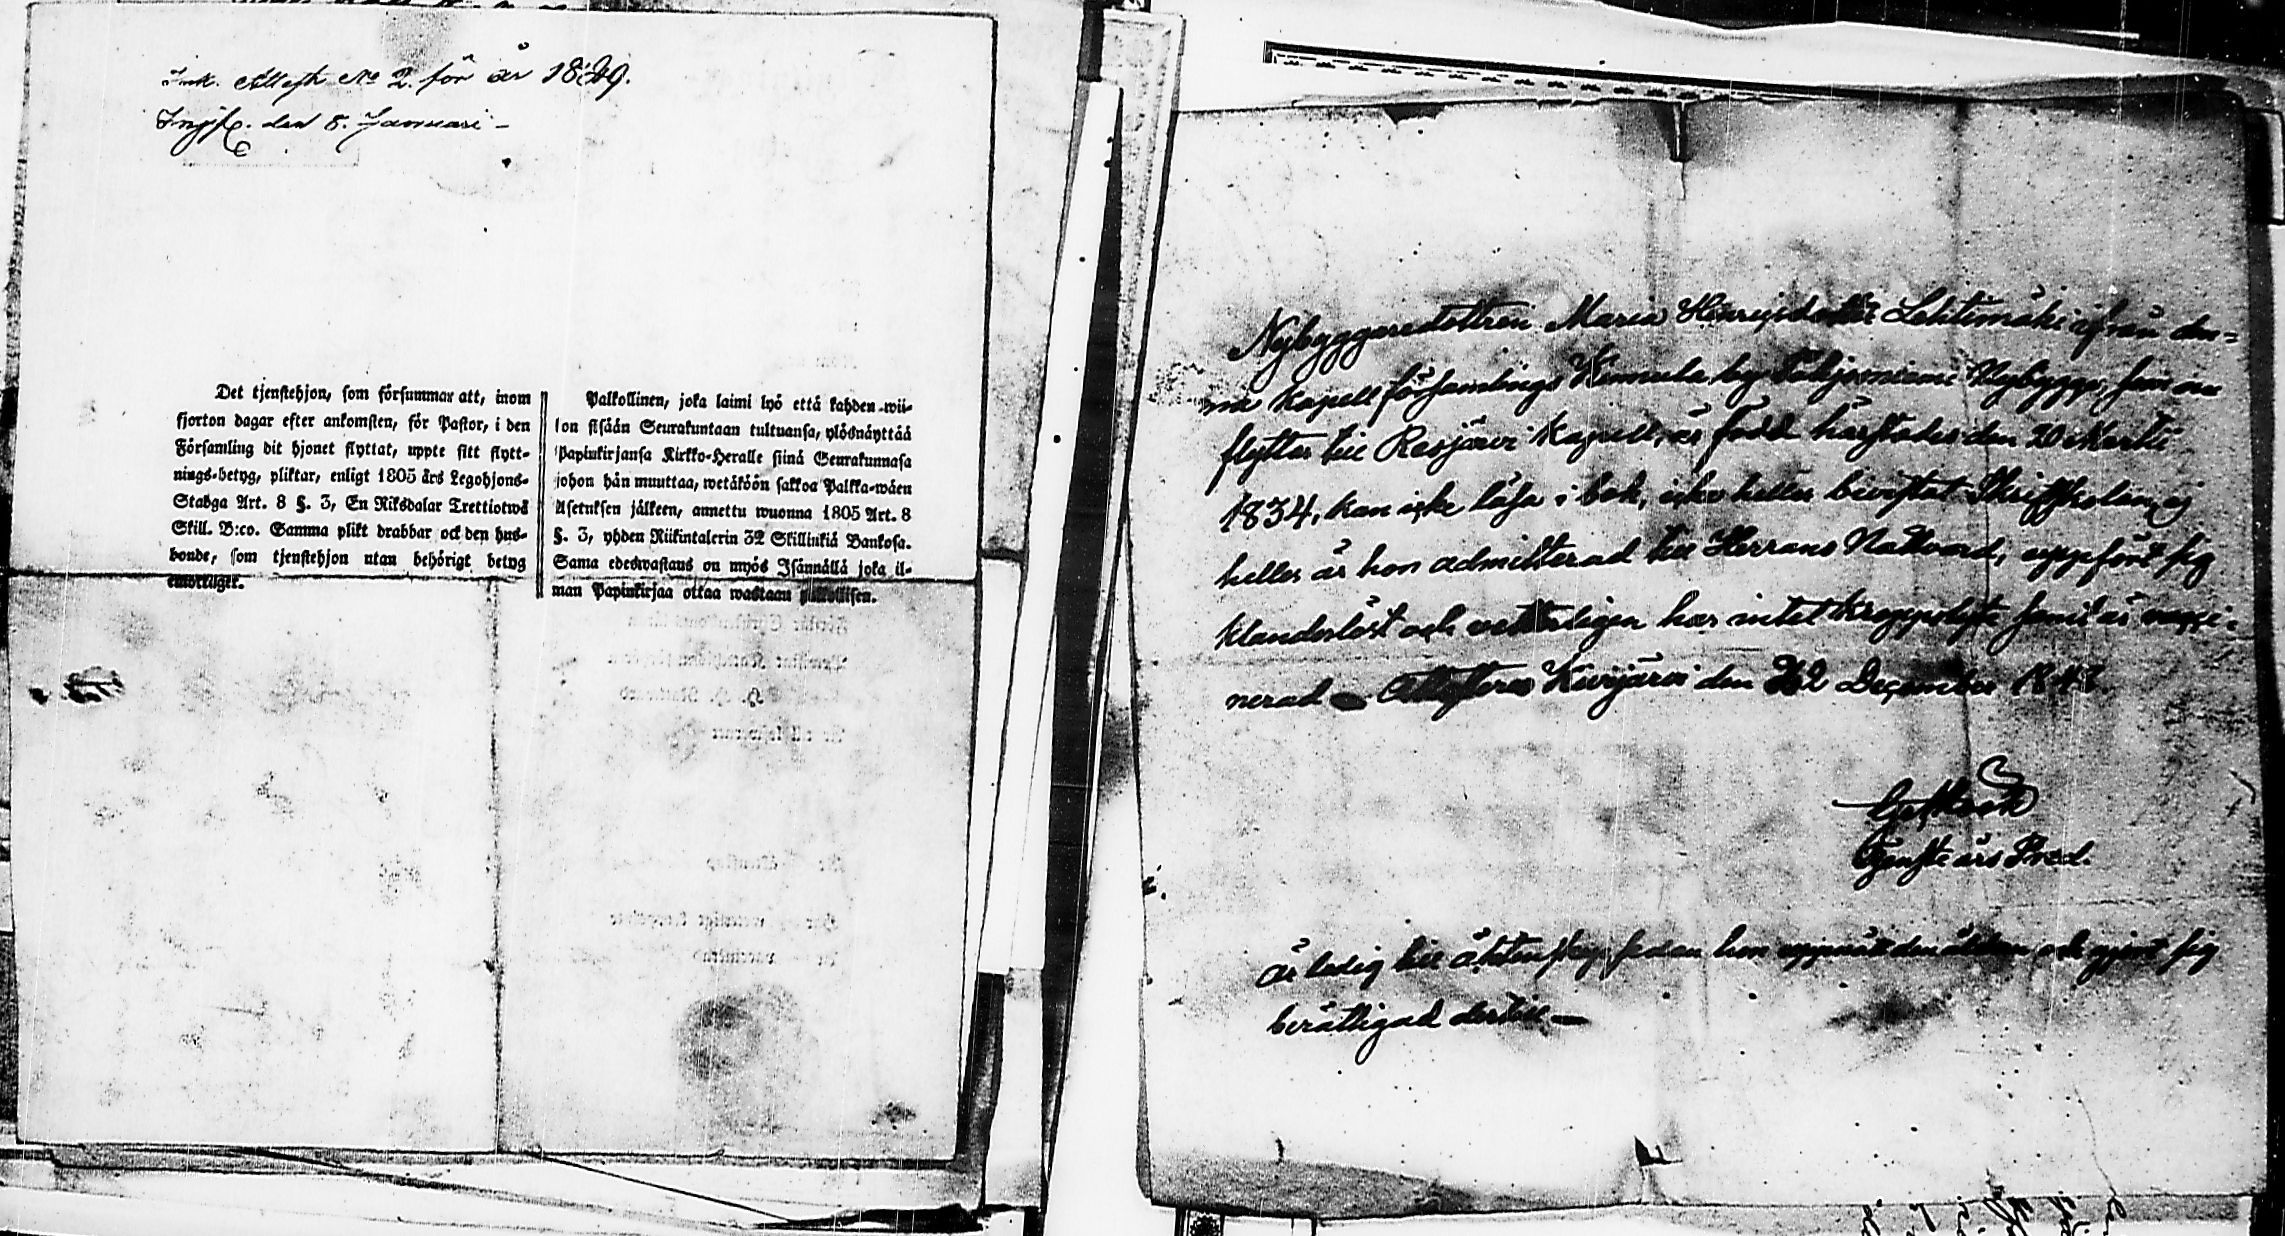 Ink. Attest No 2. för år 1849.
den 8. Januari
Det tjenstehjon, som försummar att, inom
fjorton dagar efter ankomsten, för Pastor, i den
Församling dit hjonet flyttat, uppte sitt flytt-
nings-betyg, pliktar, enligt 1805 års Legohjons-
Stadga Art. 8 §. 3, En Riksdalar Trettiotwå
Skill. B:co. Samma plikt drabbar ock den hus-
bonde, som tjenstehjon utan behörigt betyg
emottager.
Palkollinen, joka laimi lyö että kahden-wii-
kon sisään Seurakuntaan tultuansa, ylösnäyttää
Papinkirjansa Kirkko-Heralle siinä Seurakunnasa
johon hän muuttaa, wetäköön sakkoa Palkka-wäen
Asetuksen jälkeen, annettu wuonna 1805 Art. 8
§. 3, yhden Riikintalerin 32 Skillinkiä Bankosa.
Sama edeswastaus on myös Isännällä joka il-
man Papinkirjaa ottaa wastaan palkollisen.
Nybyggaredottren Maria Henricsdotter Lehtimäki ifrån den-
na Kapellförsamlings Kannula by Nybygge, som nu
flyttar till Resjärvi Kapell, är född härstädes den 20 Martii
1834, kan icke läsa i bok, icke heller bevistat Skriftskolan, ej
heller är hon admitterad till Herrans Nattvard, uppfört sig
klanderlöst och har intet kroppslyte samt är vacci-
nerad – Attesteras Kivijärvi den 22 December 1848
Tjenste års Pred.
Är ledig till äktenskap sedan hon uppnått den åldren och gjort sig
berättigad dertill –